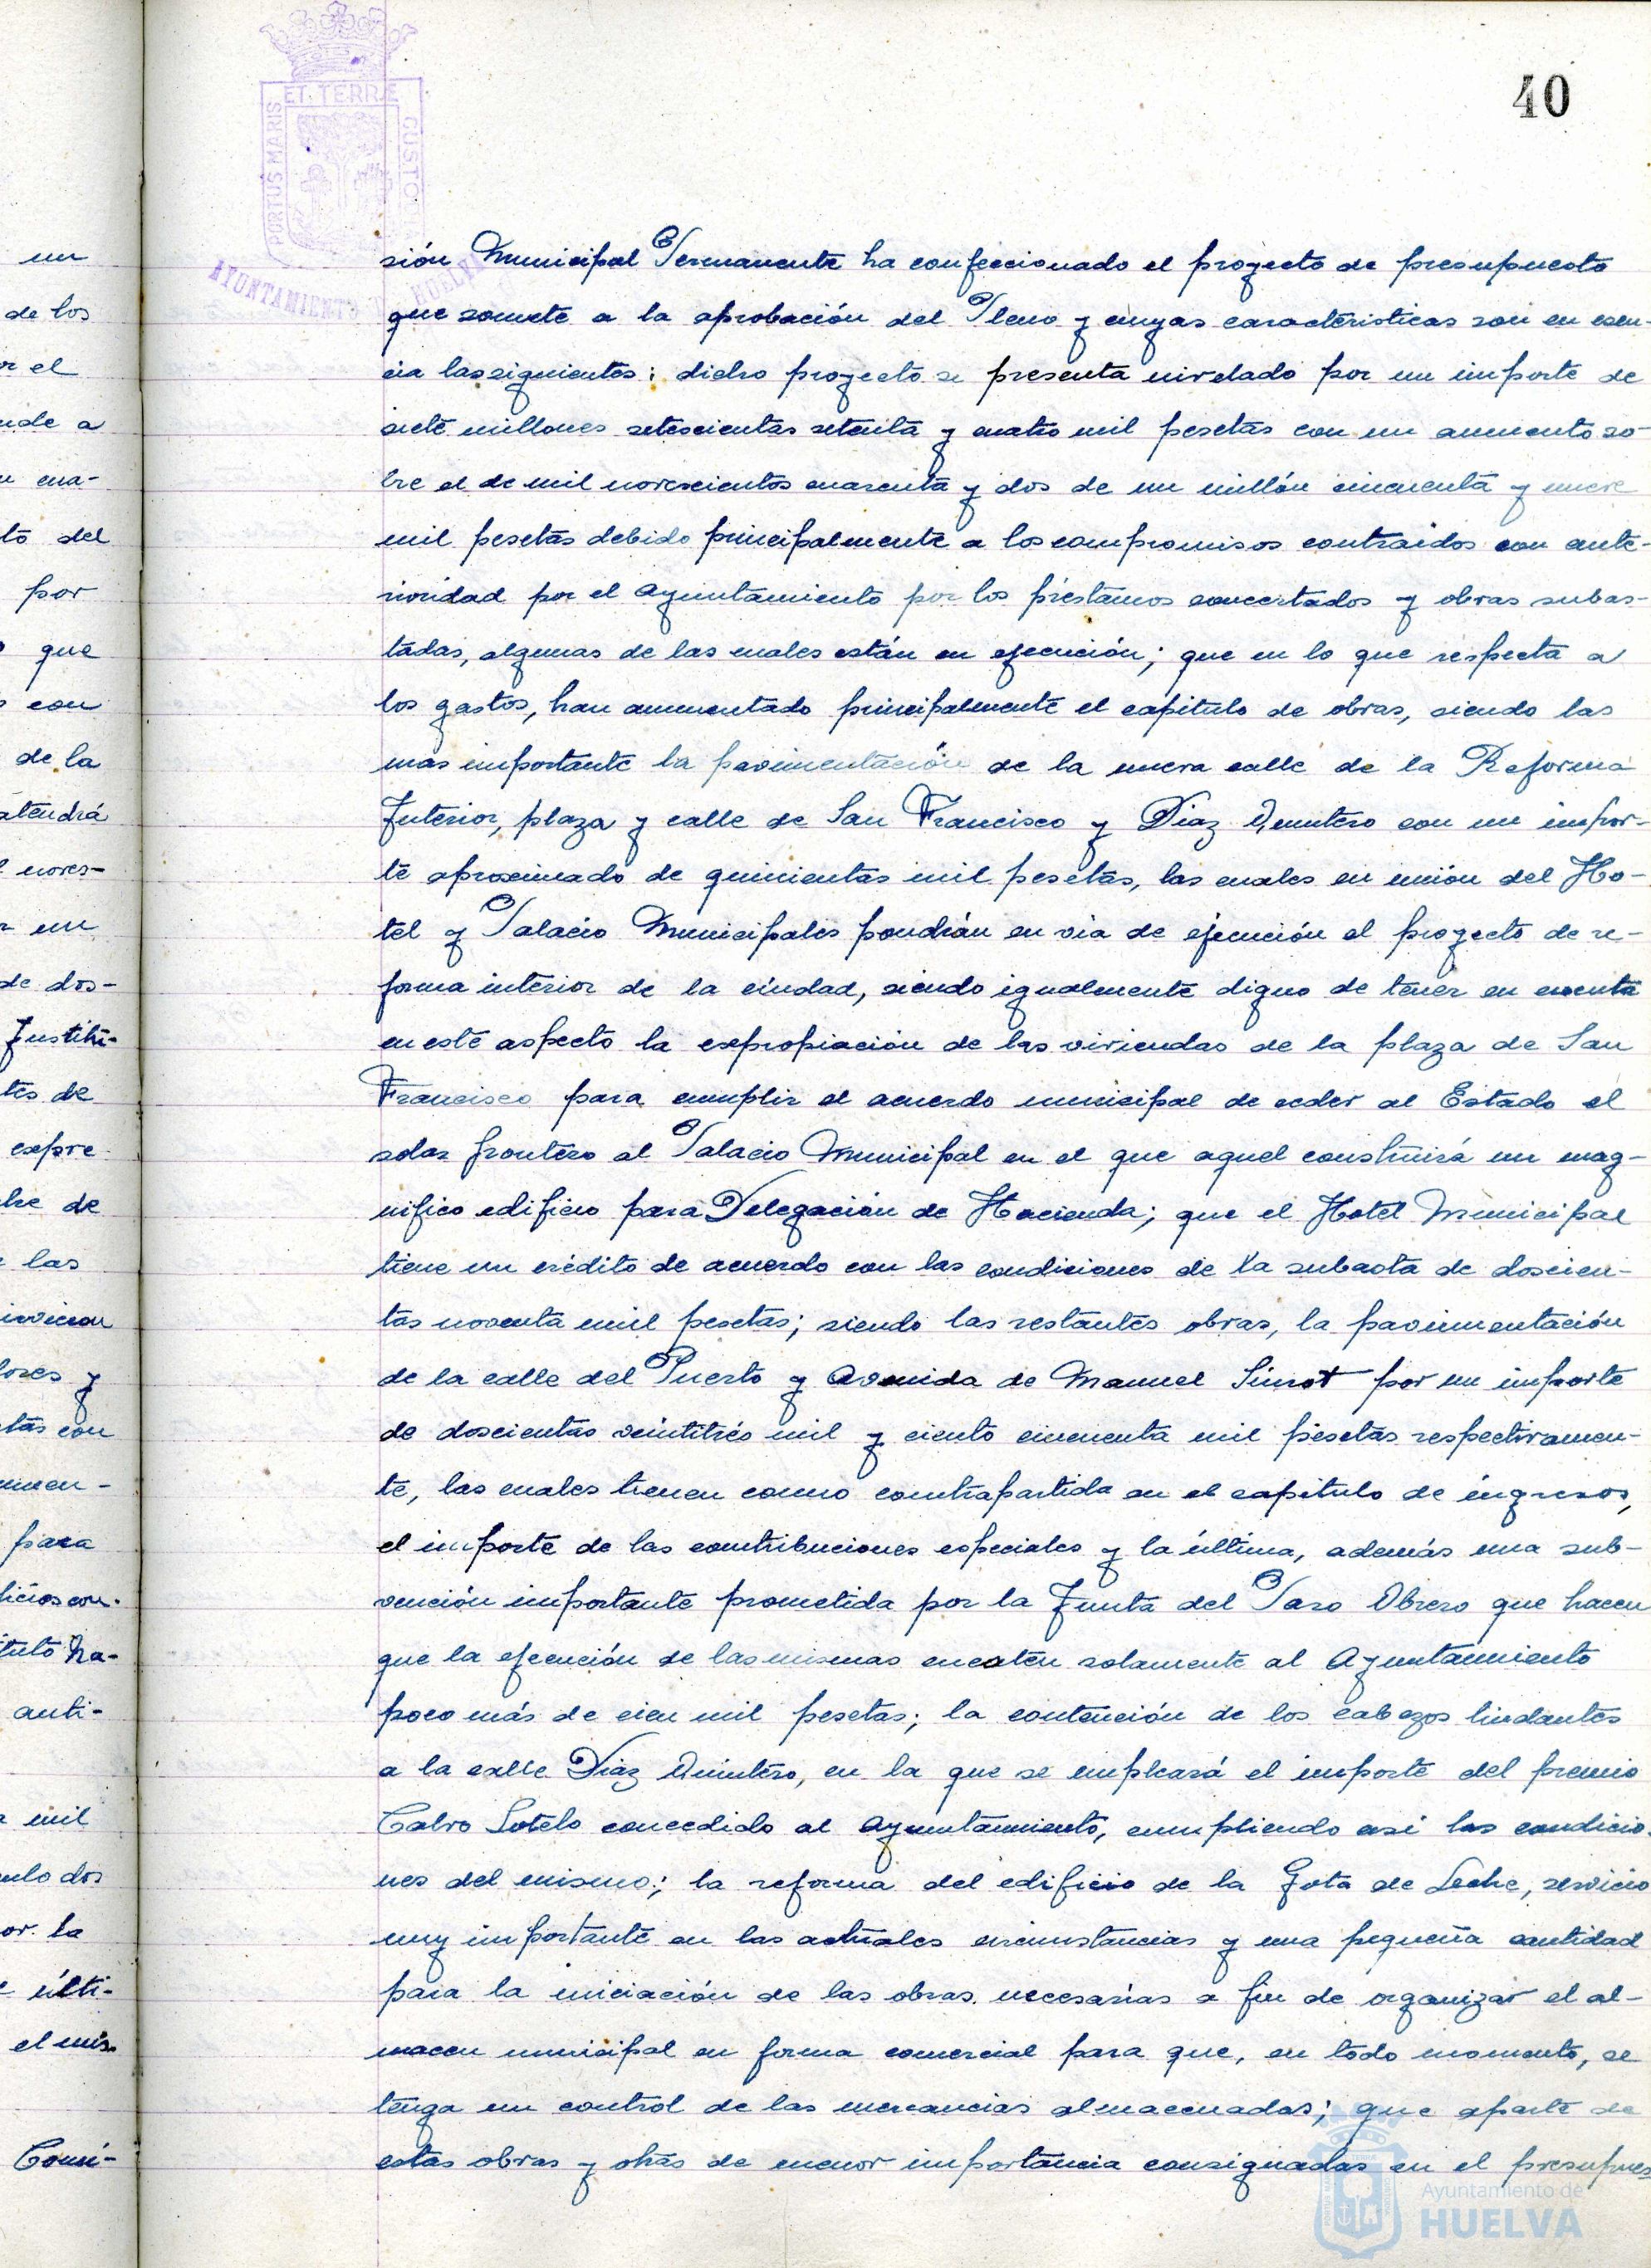 40
ET TERRE
PORTUS MARIS
CUSTO
AYUNTAMIENTO DE HUELVA
un
de los
or el
nde a
n cua-
to del
por
o que
s con
de la
atendrá
l noves-
r un
de dos-
Justihi-
tes de
expre
bre de
e las
invicion
lores y
tas con
umen-
para
licios con-
tuto ha-
anti-
r mil
ulo dos
or la
e últi-
el mis-
Comi-
sión Municipal Permanente ha confeccionado el proyecto de presupuesto
que somete a la aprobación del Pleno y cuyas caracteristicas son en esen-
cia las siguientes: dicho proyecto se presenta nivelado por un importe de
siete millones setescientas setenta y cuatro mil pesetas con un aumento so-
bre el de mil novescientos cuarenta y dos de un millón cincuenta y nueve
mil pesetas debido principalmente a los compromisos contraidos con ante-
rioridad por el Ayuntamiento por los préstamos concertados y obras subas-
tadas, algunas de las cuales están en ejecución; que en lo que respecta a
los gastos, han aumentado principalmente el capitulo de obras, siendo las
mas importante la pavimentación de la nueva calle de la Reforma
Interior, plaza y calle de San Francisco y Diaz Quintero con un impor-
te aproximado de quinientas mil pesetas, las cuales en unión del Ho-
tel y Palacio Municipales pondrán en via de ejecución el proyecto de re-
forma interior de la ciudad, siendo igualmente digno de tener en cuenta
en este aspecto la expropiación de las viviendas de la plaza de San
Francisco para cumplir el acuerdo municipal de ceder al Estado el
solar frontero al Palacio Municipal en el que aquel construirá un mag-
nifico edificio para Delegación de Hacienda; que el Hotel Municipal
tiene un crédito de acuerdo con las condiciones de la subasta de doscien-
tas noventa mil pesetas; siendo las restantes obras, la pavimentación
de la calle del Puerto y Avenida de Manuel Siurot por un importe
de doscientas veintitrés mil y ciento cincuenta mil pesetas respectivamen-
te, las cuales tienen como contrapartida en el capitulo de ingresos,
el importe de las contribuciones especiales y la última, además una sub-
vención importante prometida por la Junta del Paro Obrero que hacen
que la ejecución de las mismas cuesten solamente al Ayuntamiento
poco más de cien mil pesetas; la contención de los cabezos lindantes
a la calle Diaz Quintero, en la que se empleará el importe del premio
Calvo Sotelo concedido al Ayuntamiento, cumpliendo asi las condicio-
nes del mismo; la reforma del edificio de la Gota de Leche, servicio
muy importante en las actuales circunstancias y una pequeña cantidad
para la iniciación de las obras necesarias a fin de organizar el al-
macen municipal en forma comercial para que, en todo momento, se
tenga un control de las mercancias almacenadas; que aparte de
estas obras y otras de menor importancia consignadas en el presupues
Ayuntamiento de
HUELVA